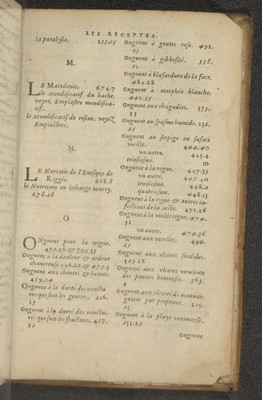 LES RECEPTES.
la paralysie. 225.25
M.
LE Macedonic. 674.7
le Mondificatif du hache.
voyez Emplastre mondifica-
tif.
le Mondificatif de resine. voyez
Emplastres.
N.
LE Narcotic de l'Euesque de
Reggie. 448.8
le Nutritum ou litharge nourry.
678.28
O
ONguent pour la teigne,
472.36 & 703.33
Onguent à la douleur & ardeur
chancreuse.
Onguent aux chantes & hantes.
459.24
Onguent à la dureté des ioinctu-
res qui suit les gouttes, 426.
13
Onguent à la dureté des ioinctu-
res qui suit les fractures. 427.
12
Onguent à goutte rose. 492.
25
Onguent à gibbosité. 538.
21
Onguent à blafardure de la face.
463.28
Onguent à morphée blanche.
442.35
Onguent aux rhagadies. 575.
13
Onguent au spasme humide. 232.
25
Onguent au serpige ou safati
vieille. 444.40
vn autre. 445.4
troisiesme. 10
Onguent à la rogne. 447.37
vn autre. 447.40
troisiesme. 448.2
quatriesme. 448.13
Onguent à la teigne & autres in-
fections de la teste. 471.28
Onguent à la vieille tigne. 474.
32
vn autre. 474.36
Onguent aux verrües. 490.
25
Onguent aux vlceres sordides.
329.28
Onguent aux vlceres virulents
des parties honteuses. 563.
4
Onguent aux vlceres de mauuais
guerir par proprieté. 325.
25
Onguent à la playe venimeuse.
251.25
Onguent